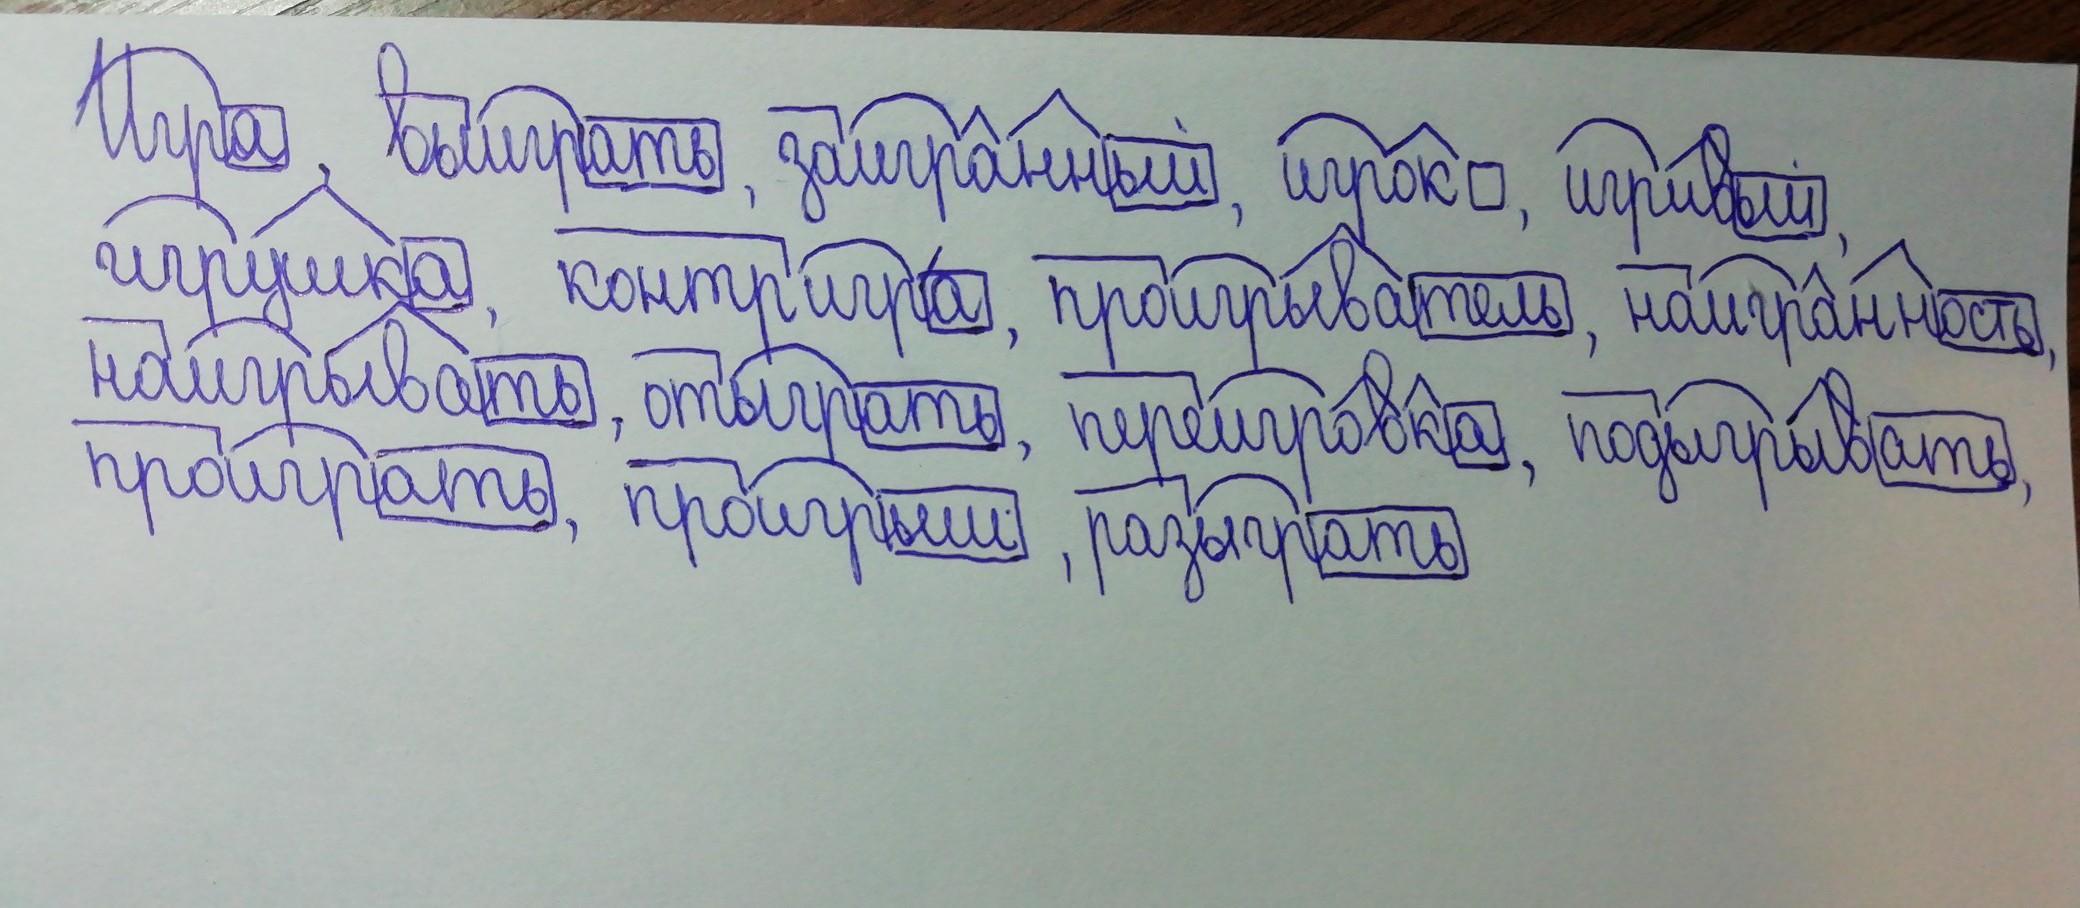 Игра, выиграть, заигранный, игрок, игривый,
игрушка, контригра, проигрыватель, наигранность,
наигрывать, отыграть, переигровка, подыгрывать,
проиграть, проигрыш, разыграть